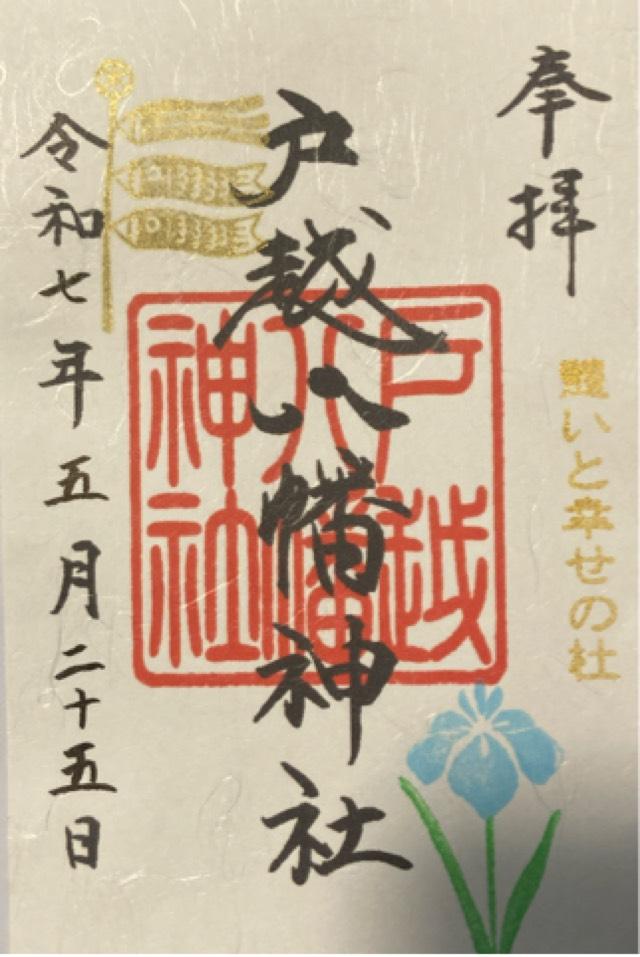 奉拝
いと幸せの杜
戸越八幡神社
戸越
八幡
神社
令和七年五月二十五日